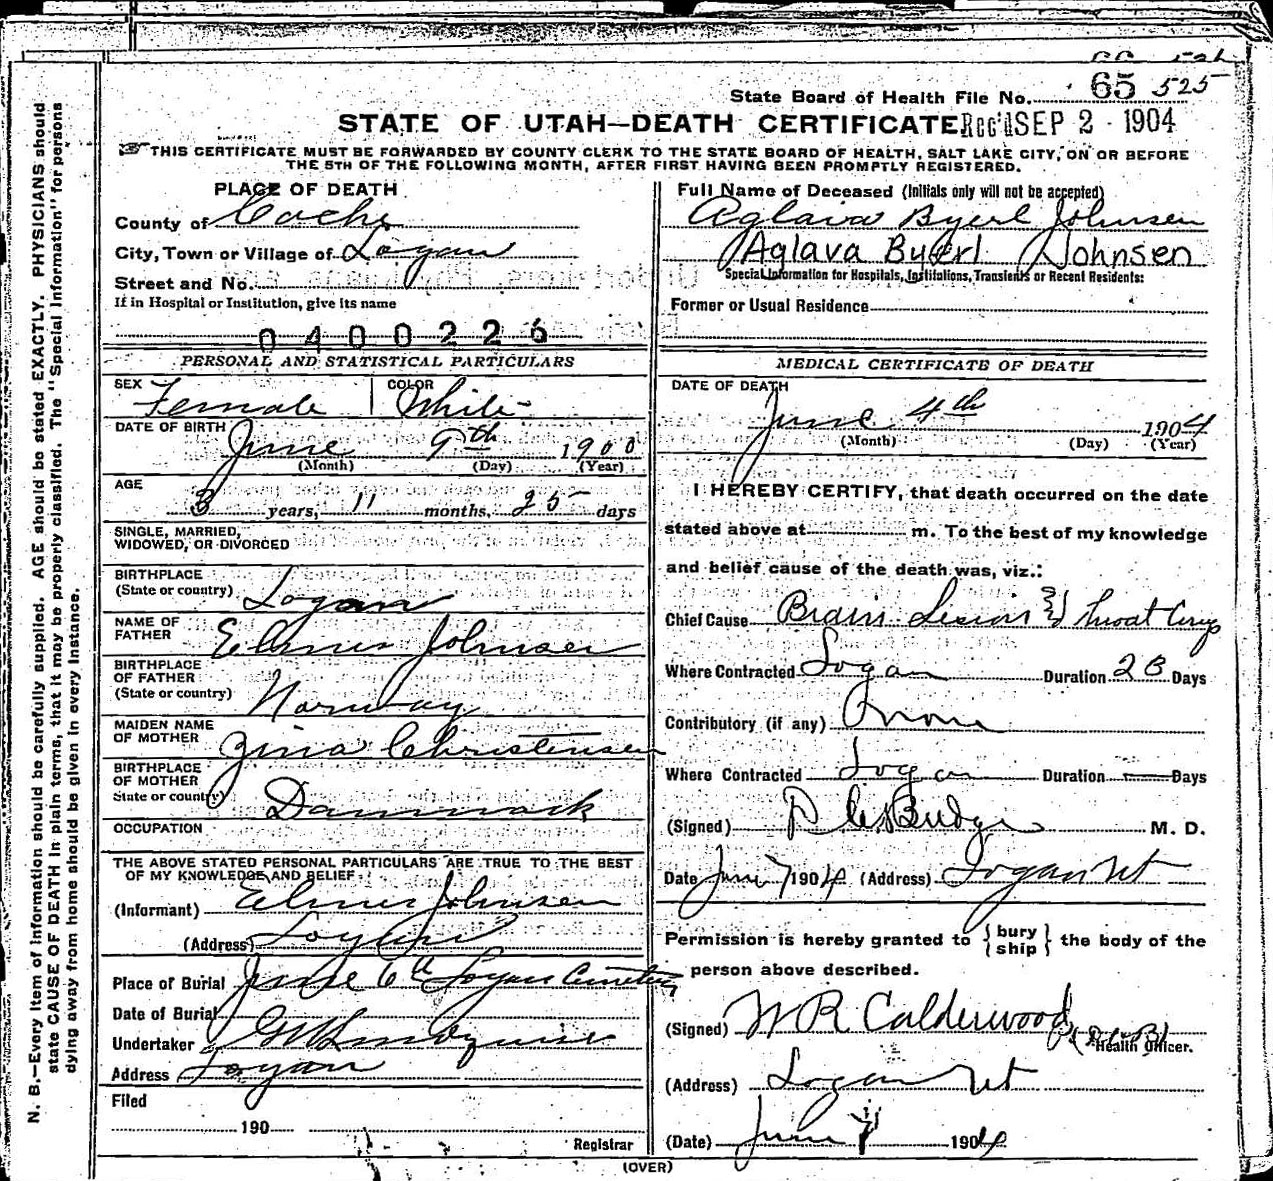 State Board of Health File No. 65 525
STATE OF UTAH—DEATH CERTIFICATE Rec'd SEP 2 - 1904
THIS CERTIFICATE MUST BE FORWARDED BY COUNTY CLERK TO THE STATE BOARD OF HEALTH, SALT LAKE CITY, ON OR BEFORE
THE 5TH OF THE FOLLOWING MONTH, AFTER FIRST HAVING BEEN PROMPTLY REGISTERED.
PLACE OF DEATH
County of Cache
City, Town or Village of Logan
Street and No.
If in Hospital or Institution, give its name
0400226
PERSONAL AND STATISTICAL PARTICULARS
SEX Female COLOR White
DATE OF BIRTH June 9th 1900
(Month) (Day) (Year)
AGE
3 years, 11 months, 25 days
SINGLE, MARRIED,
WIDOWED, OR DIVORCED
BIRTHPLACE
(State or country) Logan
NAME OF
FATHER Elmer Johnsen
BIRTHPLACE
OF FATHER
(State or country) Norway
MAIDEN NAME
OF MOTHER Zina Christensen
BIRTHPLACE
OF MOTHER
State or country) Danmark
OCCUPATION
THE ABOVE STATED PERSONAL PARTICULARS ARE TRUE TO THE BEST
OF MY KNOWLEDGE AND BELIEF
(Informant) Elmer Johnsen
(Address) Logan
Place of Burial June 6th Logan Cemetery
Date of Burial
Undertaker
Address Logan
Filed
190
Registrar
Full Name of Deceased (Initials only will not be accepted)
Aglava Byerl Johnsen
Aglava Byerl Johnsen
Special Information for Hospitals, Institutions, Transients or Recent Residents:
Former or Usual Residence
MEDICAL CERTIFICATE OF DEATH
DATE OF DEATH
June 4th 1904
(Month) (Day) (Year)
I HEREBY CERTIFY, that death occurred on the date
stated above at m. To the best of my knowledge
and belief cause of the death was, viz.:
Chief Cause Brain Lesion & throat
Where Contracted Logan Duration 28 Days
Contributory (if any)
Where Contracted Logan Duration Days
(Signed) D C Budge M. D.
Date June 7 1904 (Address) Logan Ut
Permission is hereby granted to { bury ship } the body of the
person above described.
(Signed) W R Calderwood
Health Officer.
(Address) Logan Ut
(Date) June 7 1904
(OVER)
N. B.—Every item of information should be carefully supplied. AGE should be stated EXACTLY. PHYSICIANS should
state CAUSE OF DEATH in plain terms, that it may be properly classified. The "Special Information" for persons
dying away from home should be given in every instance.